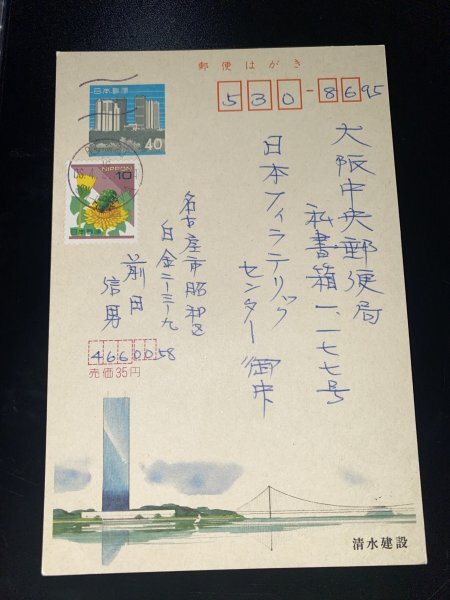 郵便はがき
530-8695
日本郵便
40
NIPPON
10
日本郵便
大阪中央郵便局
私書箱一、一七七号
日本フィラテリック
センター 御中
名古屋市昭和区
白金二ー三ー九
前田
信男
4660058
売価35円
清水建設